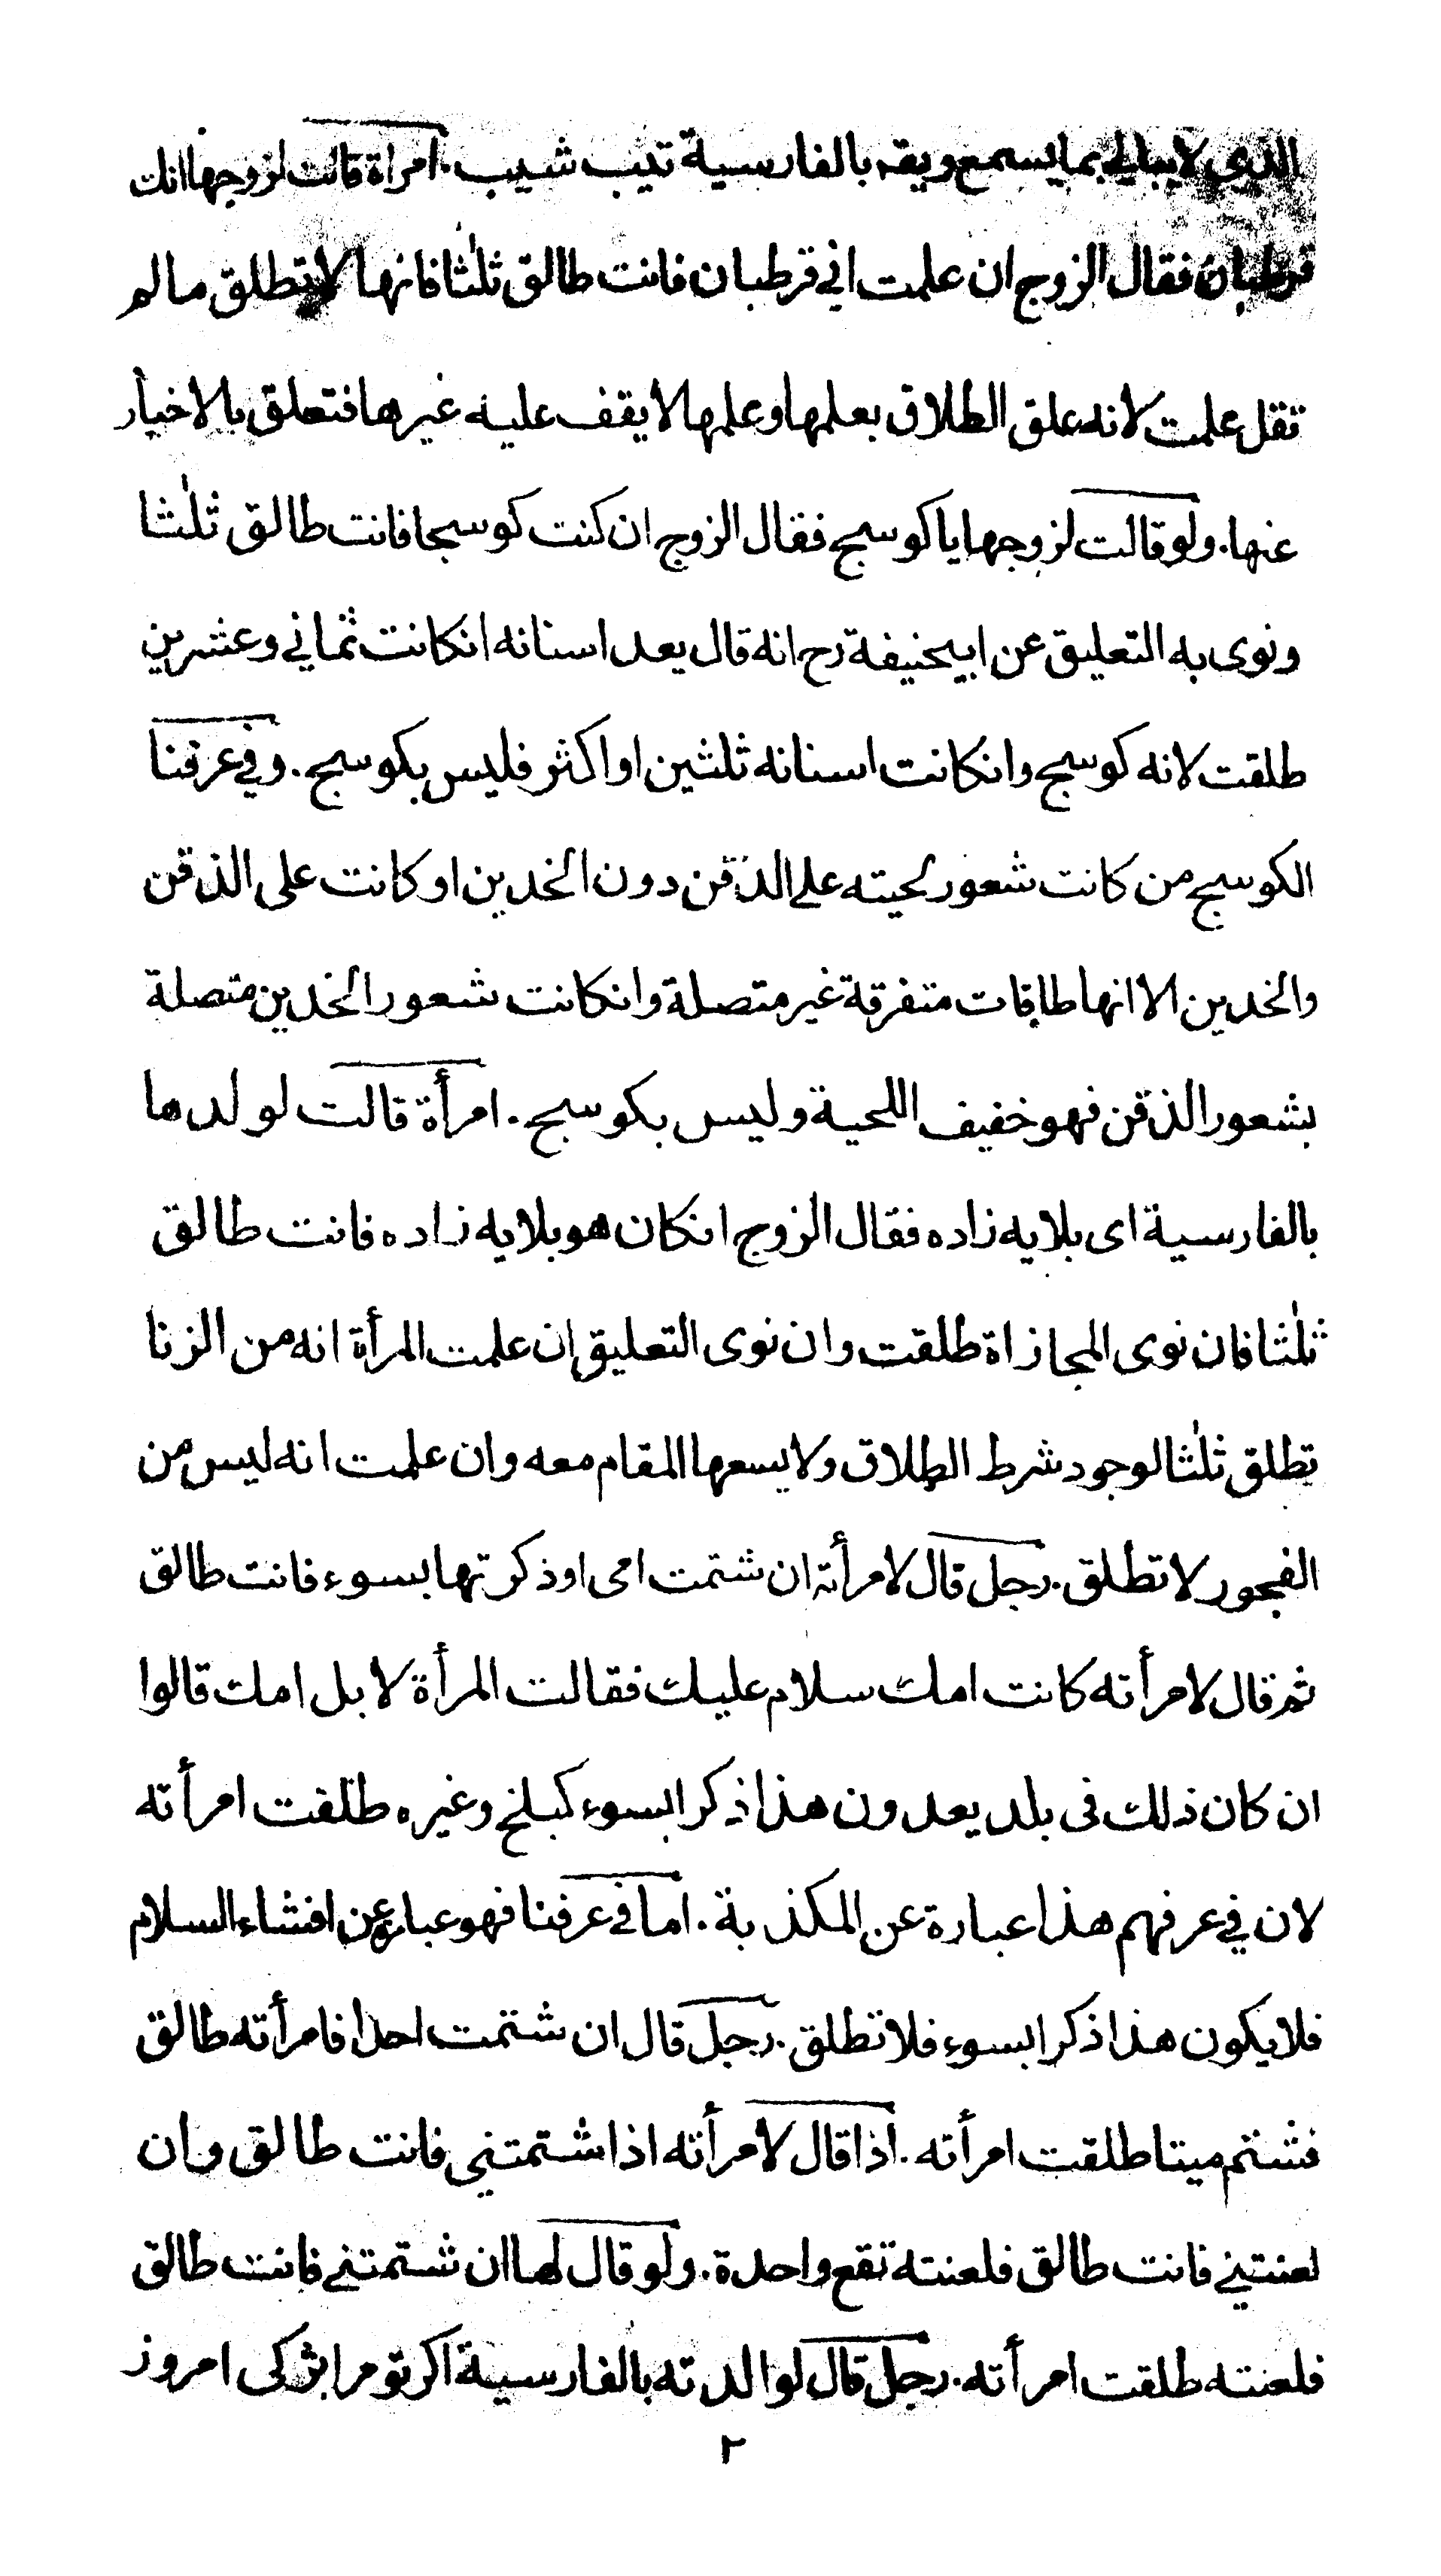 الذي لا يبالي بما يسمع ويقه بالفارسية تيب شيب. امراة قالت لزوجها انك
قرطبان فقال الزوج ان علمت اني قرطبان فانت طالق ثلٰثا فانها لا تطلق ما لم
تقل علمت لانه علق الطلاق بعلمها وعلمها لا يقف عليه غيرها فتعلق بالاخبار
عنها. ولو قالت لزوجها يا كوسج فقال الزوج ان كنت كوسجا فانت طالق ثلٰثا
ونوى به التعليق عن ابيحنيفة رح انه قال يعد اسنانه انكانت ثماني وعشرين
طلقت لانه كوسج وانكانت اسنانه ثلثين او اكثر فليس بكوسج. وفي عرفنا
الكوسج من كانت شعور لحيته على الذقن دون الخدين او كانت على الذقن
والخدين الا انها طاقات متفرقة غير متصلة وانكانت شعور الخدين متصلة
بشعور الذقن فهو خفيف اللحية وليس بكوسج. امرأة قالت لولدها
بالفارسية اى بلايه زاده فقال الزوج انكان هو بلايه زاده فانت طالق
ثلٰثا فان نوى المجازاة طلقت وان نوى التعليق ان علمت المرأة انه من الزنا
تطلق ثلٰثا لوجود شرط الطلاق ولا يسعها المقام معه وان علمت انه ليس من
الفجور لا تطلق. رجل قال لامرأته ان شتمت امى او ذكرتها بسوء فانت طالق
ثم قال لامرأته كانت امك سلام عليك فقالت المرأة لا بل امك قالوا
ان كان ذلك فى بلد يعدون هذا ذكرا بسوء كبلخ وغيره طلقت امرأته
لان في عرفهم هذا عبارة عن المكذبة. اما في عرفنا فهو عبارة عن افشاء السلام
فلا يكون هذا ذكرا بسوء فلا تطلق. رجل قال ان شتمت احدا فامرأته طالق
فشتم ميتا طلقت امرأته. اذا قال لامرأته اذا شتمتني فانت طالق وان
لعنتيني فانت طالق فلعنته تقع واحدة. ولو قال لها ان شتمتني فانت طالق
فلعنته طلقت امرأته. رجل قال لوالدته بالفارسية اكر تو مرا بزكى امروز
٢